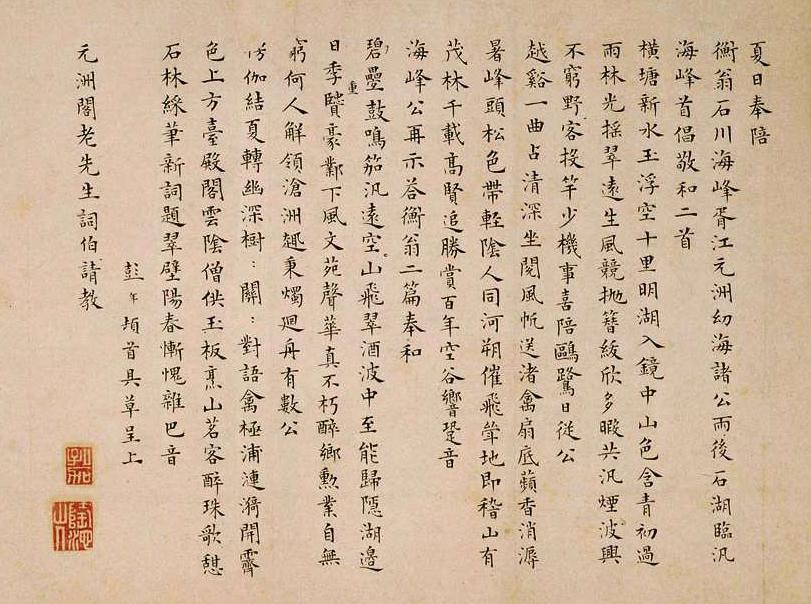 夏日奉陪
衡翁石川海峰胥江元洲幼海諸公雨後石湖臨汎
海峰首倡敬和二首
橫塘新水玉浮空十里明湖入鏡中山色含青初過
雨林光搖翠遠生風競拋簪紱欣多暇共汎煙波興
不窮野客投竿少機事喜陪鷗鷺日從公
越谿一曲占清深坐閱風帆送渚禽扇底蘋香消溽
暑峰頭松色帶輕陰人同河朔催飛斝地即稽山有
茂林千載高賢追勝賞百年空谷響跫音
海峰公再示荅衡翁二篇奉和
碧疊重鼓鳴笳汎遠空山飛翠酒波中至能歸隱湖邊
日季贒豪鄴下風文苑聲華真不朽醉鄉勳業自無
窮何人解領滄洲趣秉燭迴舟有數公
伽結夏轉幽深樹：關：對語禽極浦漣漪開霽
色上方臺殿閣雲陰僧供玉板烹山茗客醉珠歌憇
石林綵筆新詞題翠壁陽春慚愧雜巴音
彭年頓首具草呈上
元洲閣老先生詞伯請教